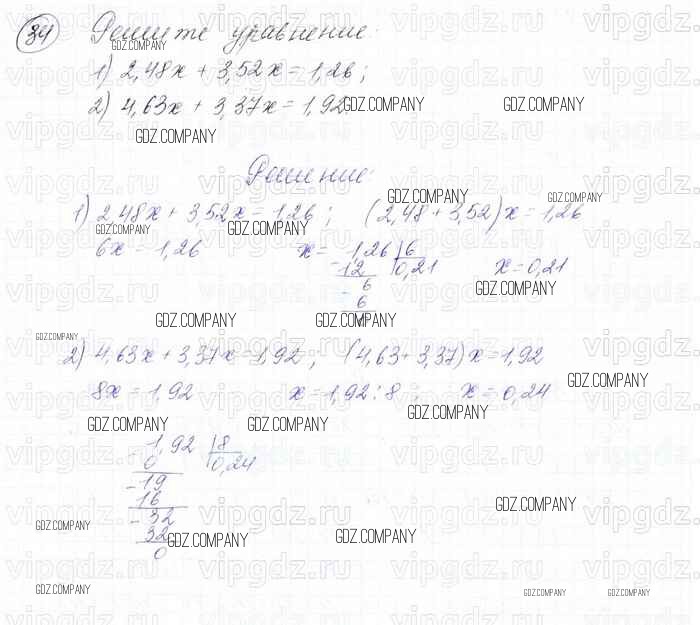 34 Решите уравнение:
1) 2,48x + 3,52x = 1,26;
2) 4,63x + 3,37x = 1,92.
Решение:
1) 2,48x + 3,52x = 1,26 ; (2,48 + 3,52)x = 1,26
6x = 1,26 x = 1,26 | 6 x = 0,21
- 12 0,21
- 6
6
2) 4,63x + 3,37x = 1,92 ; (4,63 + 3,37)x = 1,92
8x = 1,92 x = 1,92 : 8 ; x = 0,24
- 1,92 | 8
0 0,24
- 19
16
- 32
32
0
GDZ.COMPANY
vipgdz.ru